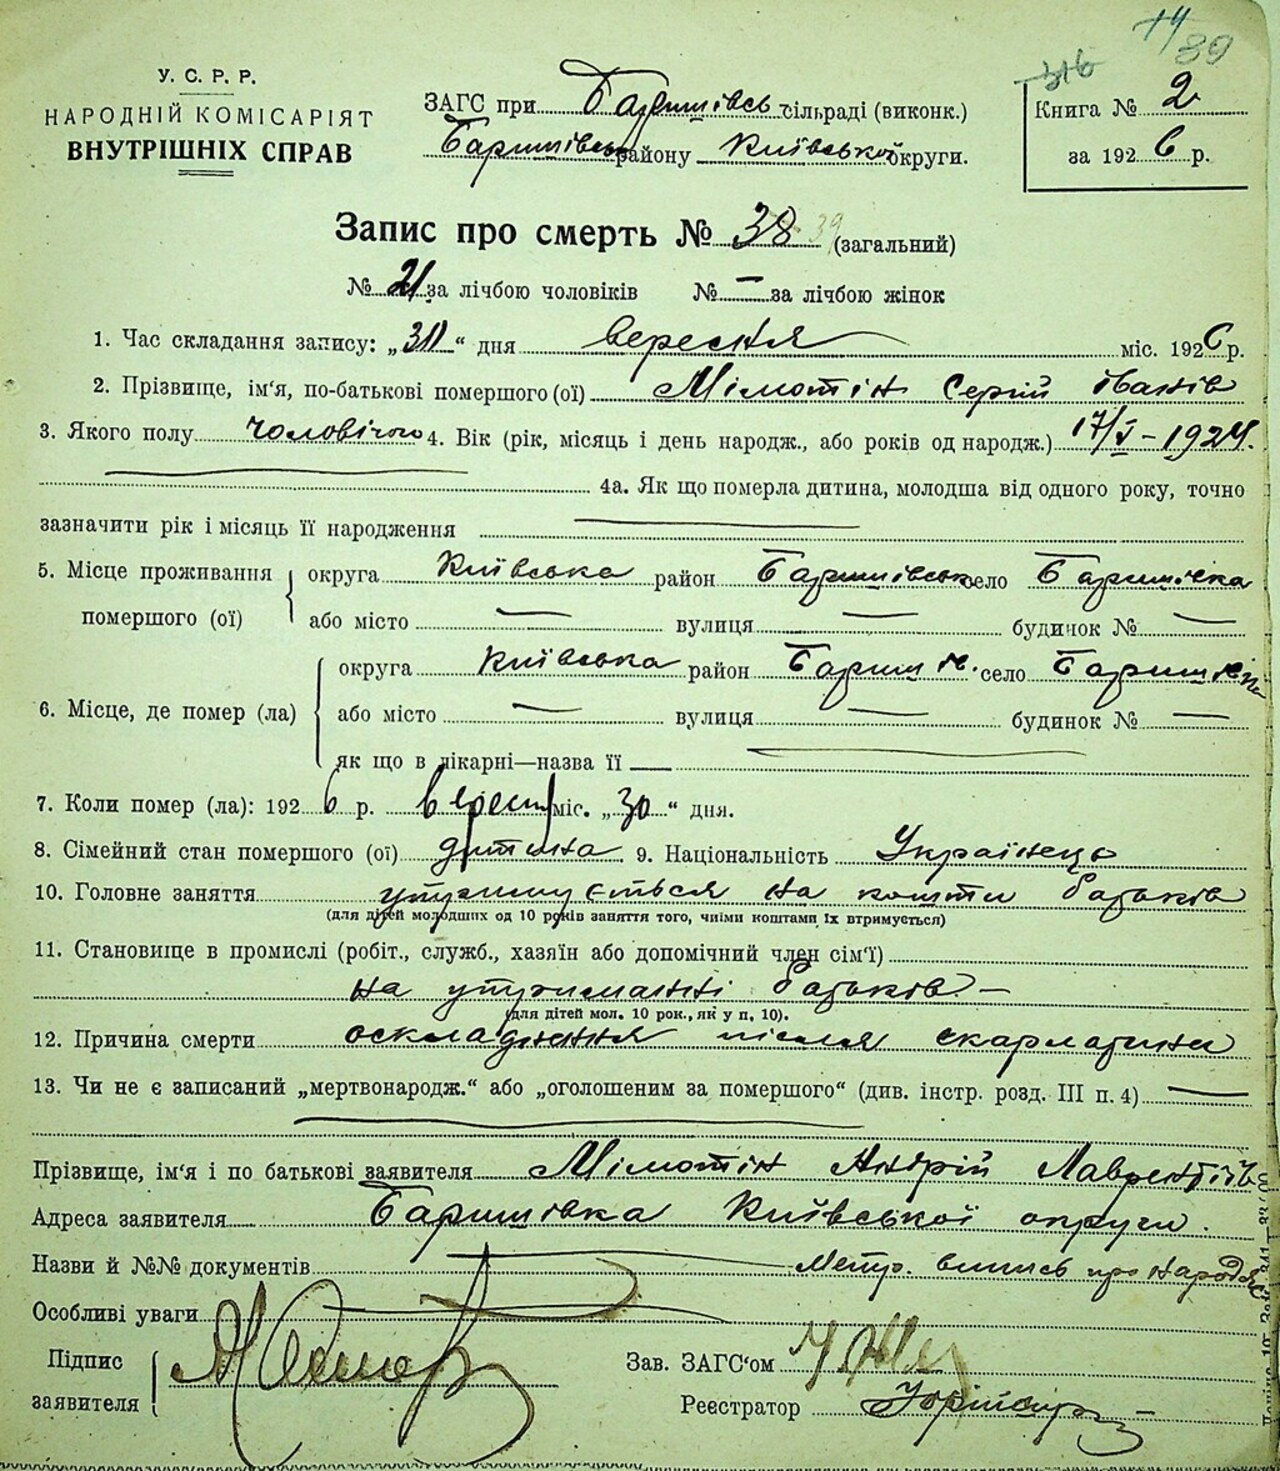 14
39
316
У. С. Р. Р.
НАРОДНІЙ КОМІСАРІЯТ
ВНУТРІШНІХ СПРАВ
ЗАГС при Баришівсь сільраді (виконк.)
Баришівськ району Київської округи.
Книга № 2
за 1926 р.
Запис про смерть № 38 39 (загальний)
№ 21 за лічбою чоловіків № — за лічбою жінок
1. Час складання запису: „30“ дня вересня міс. 1926 р.
2. Прізвище, ім‘я, по-батькові помершого (ої) Мімотін Сергій Іванів
3. Якого полу чоловічого 4. Вік (рік, місяць і день народж., або років од народж.) 17/V – 1924.
4а. Як що померла дитина, молодша від одного року, точно
зазначити рік і місяць її народження
5. Місце проживання помершого (ої) округа Київська район Баришівськ село Баришівка
або місто — вулиця — будинок № —
6. Місце, де помер (ла) округа Київська район Баришів. село Баришівка
або місто — вулиця — будинок № —
як що в лікарні—назва її —
7. Коли помер (ла): 1926 р. вересн міс. „30“ дня.
8. Сімейний стан помершого (ої) дитина 9. Національність Українець
10. Головне заняття утримується на кошти батьків
(для дітей молодших од 10 років заняття того, чиїми коштами їх втримується)
11. Становище в промислі (робіт., служб., хазяїн або допомічний член сім‘ї)
на утриманні батьків –
(для дітей мол. 10 рок., як у п. 10).
12. Причина смерти оскладнення після скарлатини
13. Чи не є записаний „мертвонародж.“ або „оголошеним за помершого“ (див. інстр. розд. III п. 4) —
Прізвище, ім‘я і по батькові заявителя Мімотін Андрій Лаврентіїв
Адреса заявителя Баришівка Київської округи.
Назви й №№ документів — Метр. випись про народж
Особливі уваги —
Підпис заявителя
Зав. ЗАГС‘ом
Реєстратор